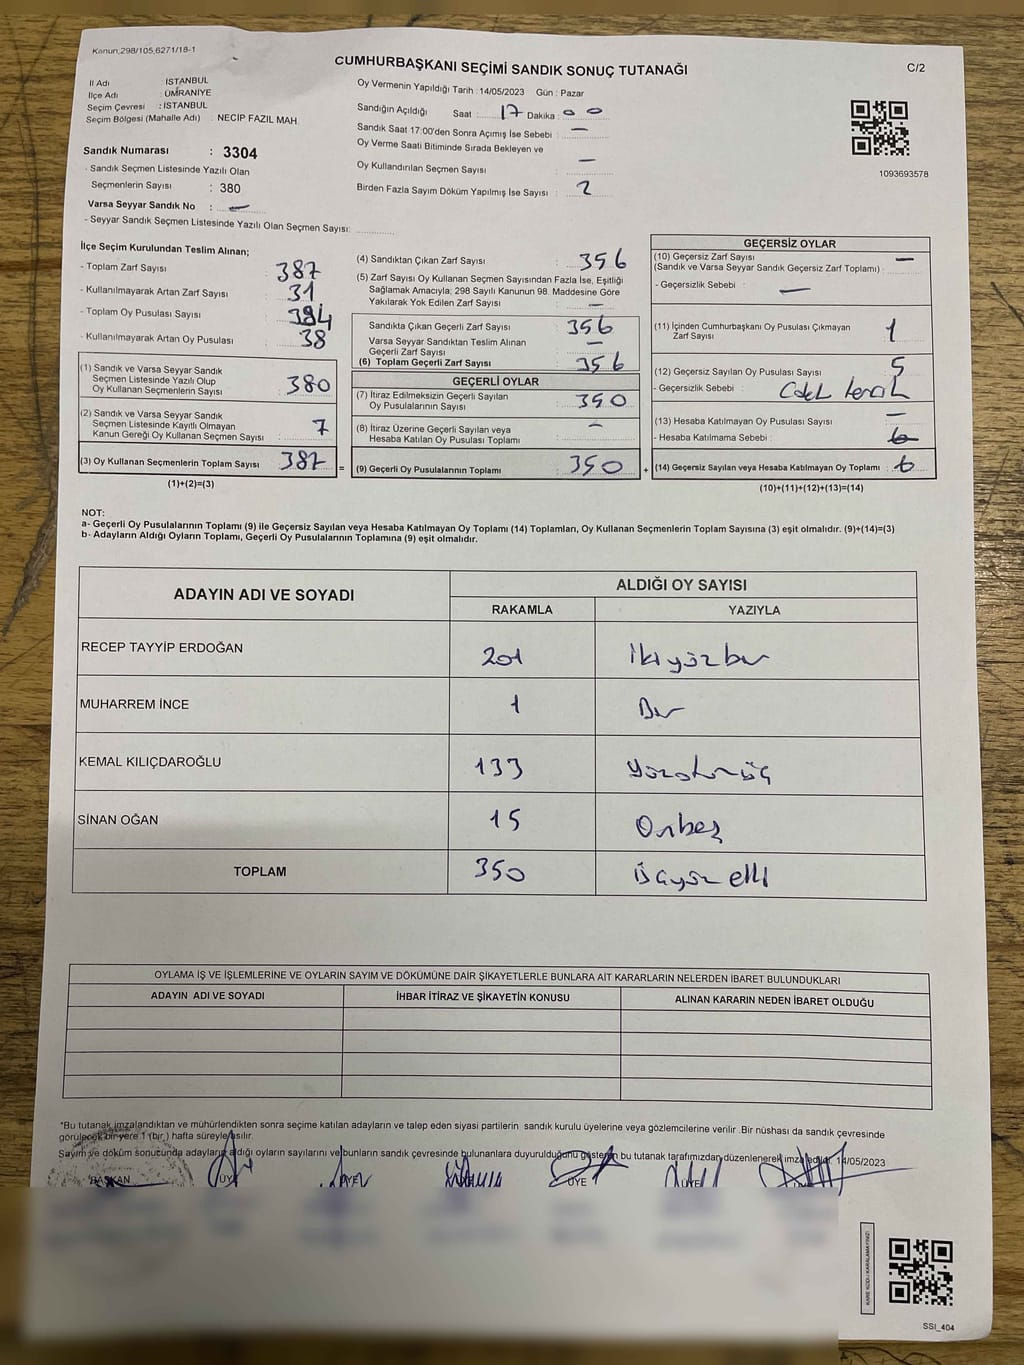 Kanun,298/105,6271/18-1
CUMHURBAŞKANI SEÇİMİ SANDIK SONUÇ TUTANAĞI
C/2
İl Adı : İSTANBUL
İlçe Adı : ÜMRANİYE
Seçim Çevresi : İSTANBUL
Seçim Bölgesi (Mahalle Adı) : NECİP FAZIL MAH.
Sandık Numarası : 3304
- Sandık Seçmen Listesinde Yazılı Olan
Seçmenlerin Sayısı : 380
Varsa Seyyar Sandık No : —
- Seyyar Sandık Seçmen Listesinde Yazılı Olan Seçmen Sayısı:
Oy Vermenin Yapıldığı Tarih : 14/05/2023 Gün : Pazar
Sandığın Açıldığı Saat : 17 Dakika : 00
Sandık Saat 17:00'den Sonra Açımış İse Sebebi : —
Oy Verme Saati Bitiminde Sırada Bekleyen ve
Oy Kullandırılan Seçmen Sayısı : —
Birden Fazla Sayım Döküm Yapılmış İse Sayısı : 2
1093693578
İlçe Seçim Kurulundan Teslim Alınan;
- Toplam Zarf Sayısı : 387
- Kullanılmayarak Artan Zarf Sayısı : 31
- Toplam Oy Pusulası Sayısı : 384
- Kullanılmayarak Artan Oy Pusulası : 38
(1) Sandık ve Varsa Seyyar Sandık
Seçmen Listesinde Yazılı Olup
Oy Kullanan Seçmenlerin Sayısı : 380
(2) Sandık ve Varsa Seyyar Sandık
Seçmen Listesinde Kayıtlı Olmayan
Kanun Gereği Oy Kullanan Seçmen Sayısı : 7
(3) Oy Kullanan Seçmenlerin Toplam Sayısı : 387
(1)+(2)=(3)
=
(4) Sandıktan Çıkan Zarf Sayısı : 356
(5) Zarf Sayısı Oy Kullanan Seçmen Sayısından Fazla İse, Eşitliği
Sağlamak Amacıyla; 298 Sayılı Kanunun 98. Maddesine Göre
Yakılarak Yok Edilen Zarf Sayısı : —
Sandıkta Çıkan Geçerli Zarf Sayısı : 356
Varsa Seyyar Sandıktan Teslim Alınan
Geçerli Zarf Sayısı : —
(6) Toplam Geçerli Zarf Sayısı : 356
GEÇERLİ OYLAR
(7) İtiraz Edilmeksizin Geçerli Sayılan
Oy Pusulalarının Sayısı : 350
(8) İtiraz Üzerine Geçerli Sayılan veya
Hesaba Katılan Oy Pusulası Toplamı : —
(9) Geçerli Oy Pusulalarının Toplamı : 350
+
GEÇERSİZ OYLAR
(10) Geçersiz Zarf Sayısı —
(Sandık ve Varsa Seyyar Sandık Geçersiz Zarf Toplamı) :
- Geçersizlik Sebebi : —
(11) İçinden Cumhurbaşkanı Oy Pusulası Çıkmayan
Zarf Sayısı : 1
(12) Geçersiz Sayılan Oy Pusulası Sayısı : 5
- Geçersizlik Sebebi :
(13) Hesaba Katılmayan Oy Pusulası Sayısı : —
- Hesaba Katılmama Sebebi :
(14) Geçersiz Sayılan veya Hesaba Katılmayan Oy Toplamı : 6
(10)+(11)+(12)+(13)=(14)
NOT:
a- Geçerli Oy Pusulalarının Toplamı (9) ile Geçersiz Sayılan veya Hesaba Katılmayan Oy Toplamı (14) Toplamları, Oy Kullanan Seçmenlerin Toplam Sayısına (3) eşit olmalıdır. (9)+(14)=(3)
b- Adayların Aldığı Oyların Toplamı, Geçerli Oy Pusulalarının Toplamına (9) eşit olmalıdır.
ADAYIN ADI VE SOYADI
ALDIĞI OY SAYISI
RAKAMLA YAZIYLA
RECEP TAYYİP ERDOĞAN 201 İkiyüzbir
MUHARREM İNCE 1 Bir
KEMAL KILIÇDAROĞLU 133 yüzotuzüç
SİNAN OĞAN 15 Onbeş
TOPLAM 350 üçyüz elli
OYLAMA İŞ VE İŞLEMLERİNE VE OYLARIN SAYIM VE DÖKÜMÜNE DAİR ŞİKAYETLERLE BUNLARA AİT KARARLARIN NELERDEN İBARET BULUNDUKLARI
ADAYIN ADI VE SOYADI İHBAR İTİRAZ VE ŞİKAYETİN KONUSU ALINAN KARARIN NEDEN İBARET OLDUĞU
*Bu tutanak imzalandıktan ve mühürlendikten sonra seçime katılan adayların ve talep eden siyasi partilerin sandık kurulu üyelerine veya gözlemcilerine verilir .Bir nüshası da sandık çevresinde
görülecek bir yere 1 (bir ) hafta süreyle asılır.
Sayım ve döküm sonucunda adayların aldığı oyların sayılarını ve bunların sandık çevresinde bulunanlara duyurulduğunu gösteren bu tutanak tarafımızdan düzenlenerek imza edildi. 14/05/2023
BAŞKAN ÜYE ÜYE ÜYE ÜYE
KARE KODU KARALAMAYINIZ!
SSI_404